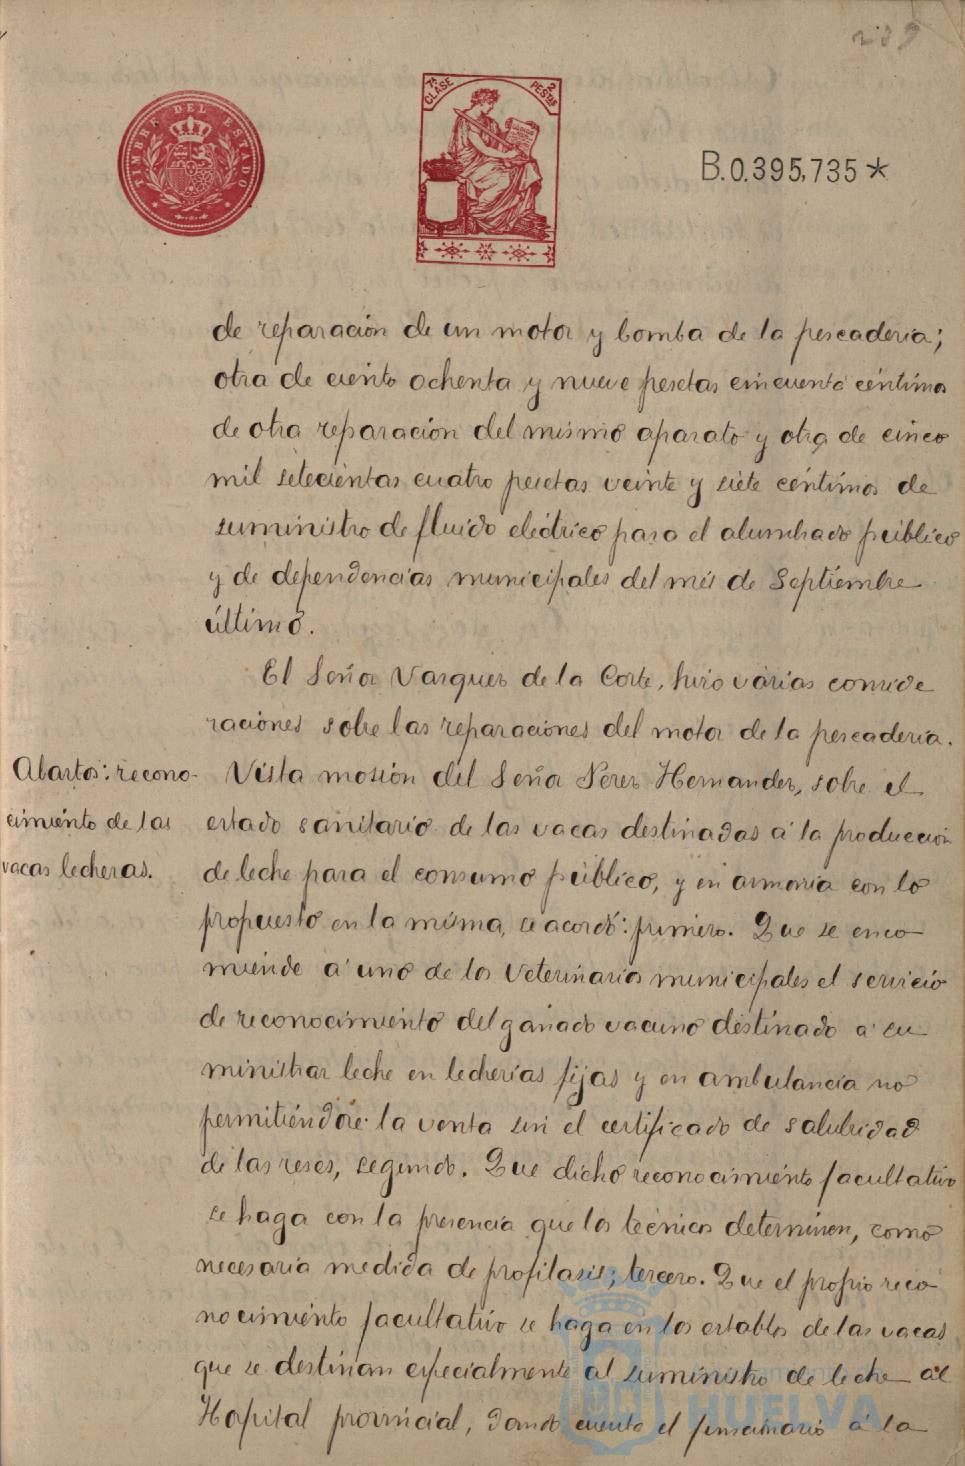 239
TIMBRE DEL ESTADO
7ª CLASE 2 PESTAS
B.0.395,735*
de reparación de un motor y bomba de la pescadería;
otra de ciento ochenta y nueve pesetas cincuenta céntimos
de otra reparación del mismo aparato y otra de cinco
mil setecientas cuatro pesetas veinte y siete céntimos de
suministro de fluido eléctrico para el alumbrado público
y de dependencias municipales del més de Septiembre
último.
El Señor Vazquez de la Corte, hizo várias conside
raciones sobre las reparaciones del motor de la pescadería.
Abastos: recono-
cimiento de las
vacas lecheras.
Vista moción del Señor Perez Hernandez, sobre el
estado sanitario de las vacas destinadas á la producción
de leche para el consumo público, y en armonía con lo
propuesto en la misma, se acordó: primero. Que se enco
miende á uno de los Veterinarios municipales el servicio
de reconocimiento del ganado vacuno destinado á su
ministrar leche en lecherías fijas y en ambulancia no
permitiéndose la venta sin el certificado de salubridad
de las reses, segundo. Que dicho reconocimiento facultativo
se haga con la presencia que los técnicos determinen, como
necesaria medida de profilasis; tercero. Que el propio reco
nocimiento facultativo se haga en los establos de las vacas
que se destinan especialmente al suministro de leche al
Hospital provincial, dando cuenta el funcionario á la
HUELVA